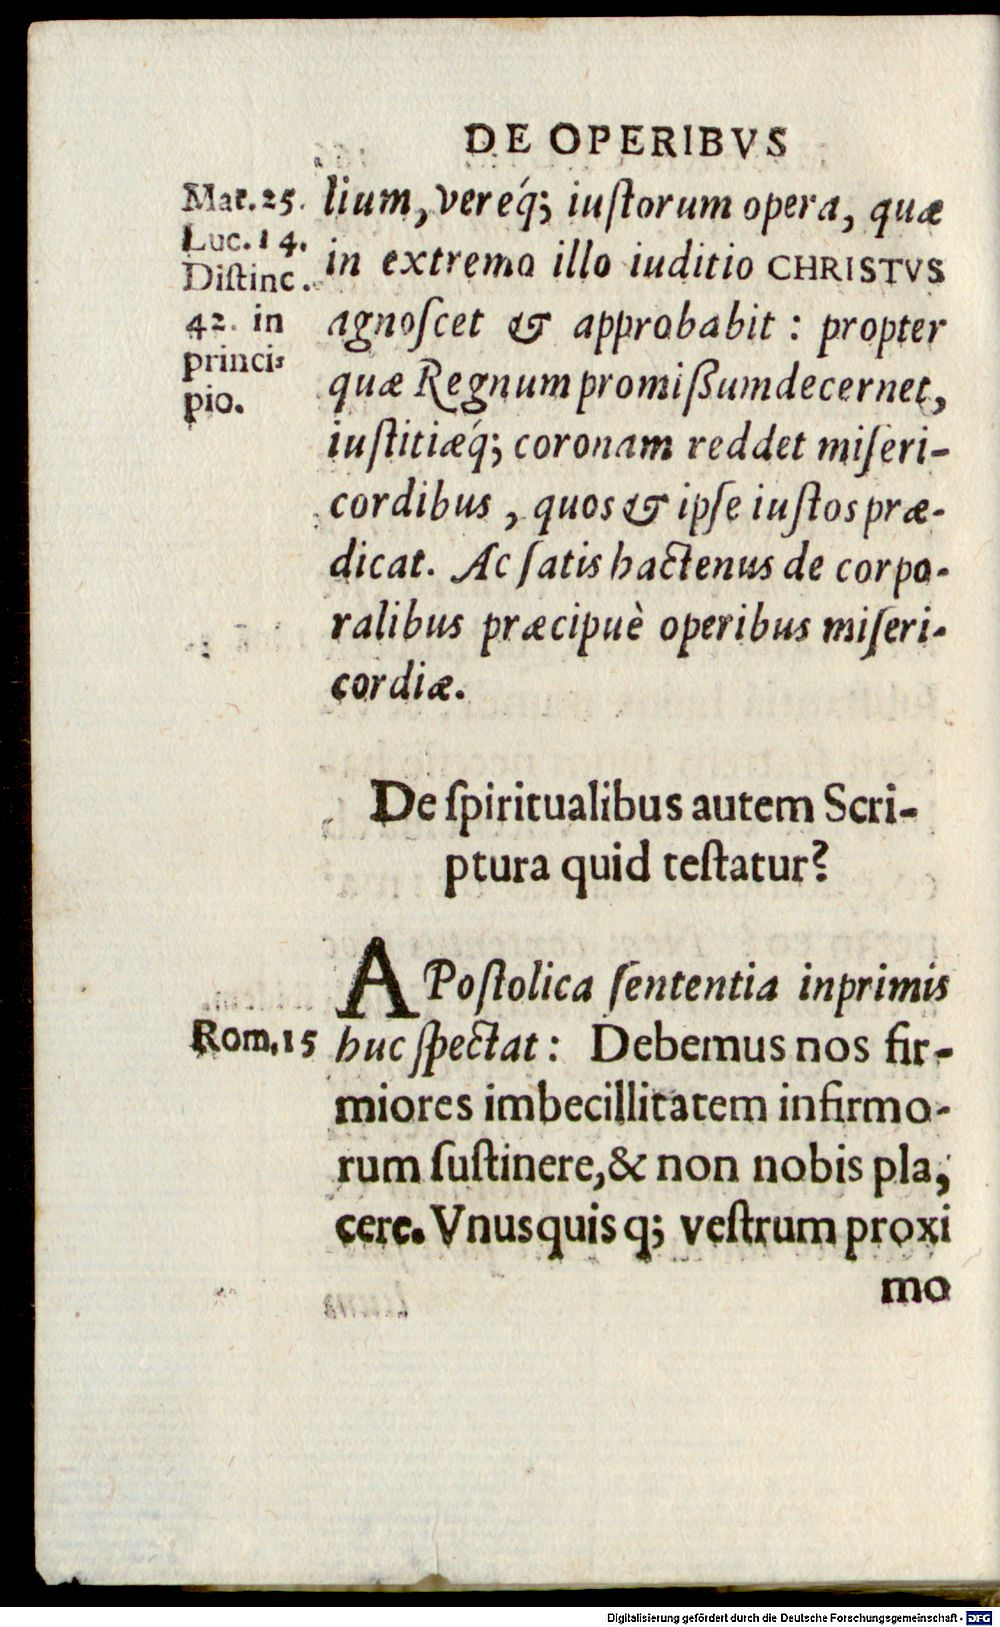 DE OPERIBVS
Mat. 25.
Luc. 14.
Distinc.
42. in
princi⸗
pio.
lium, vereq́; iuſtorum opera, quæ
in extremo illo iuditio CHRISTVS
agnoſcet & approbabit : propter
quæ Regnum promiſſum decernet,
iuſtitiæq́; coronam reddet miſeri-
cordibus , quos & ipſe iuſtos præ-
dicat. Ac ſatis hactenus de corpo-
ralibus præcipuè operibus miſeri-
cordiæ.
De ſpiritualibus autem Scri-
ptura quid teſtatur?
APoſtolica ſententia inprimis
Rom. 15
huc ſpectat : Debemus nos fir-
miores imbecillitatem infirmo-
rum ſuſtinere, & non nobis pla,
cere. Vnusquisq; veſtrum proxi
mo
Digitalisierung gefördert durch die Deutsche Forschungsgemeinschaft - DFG